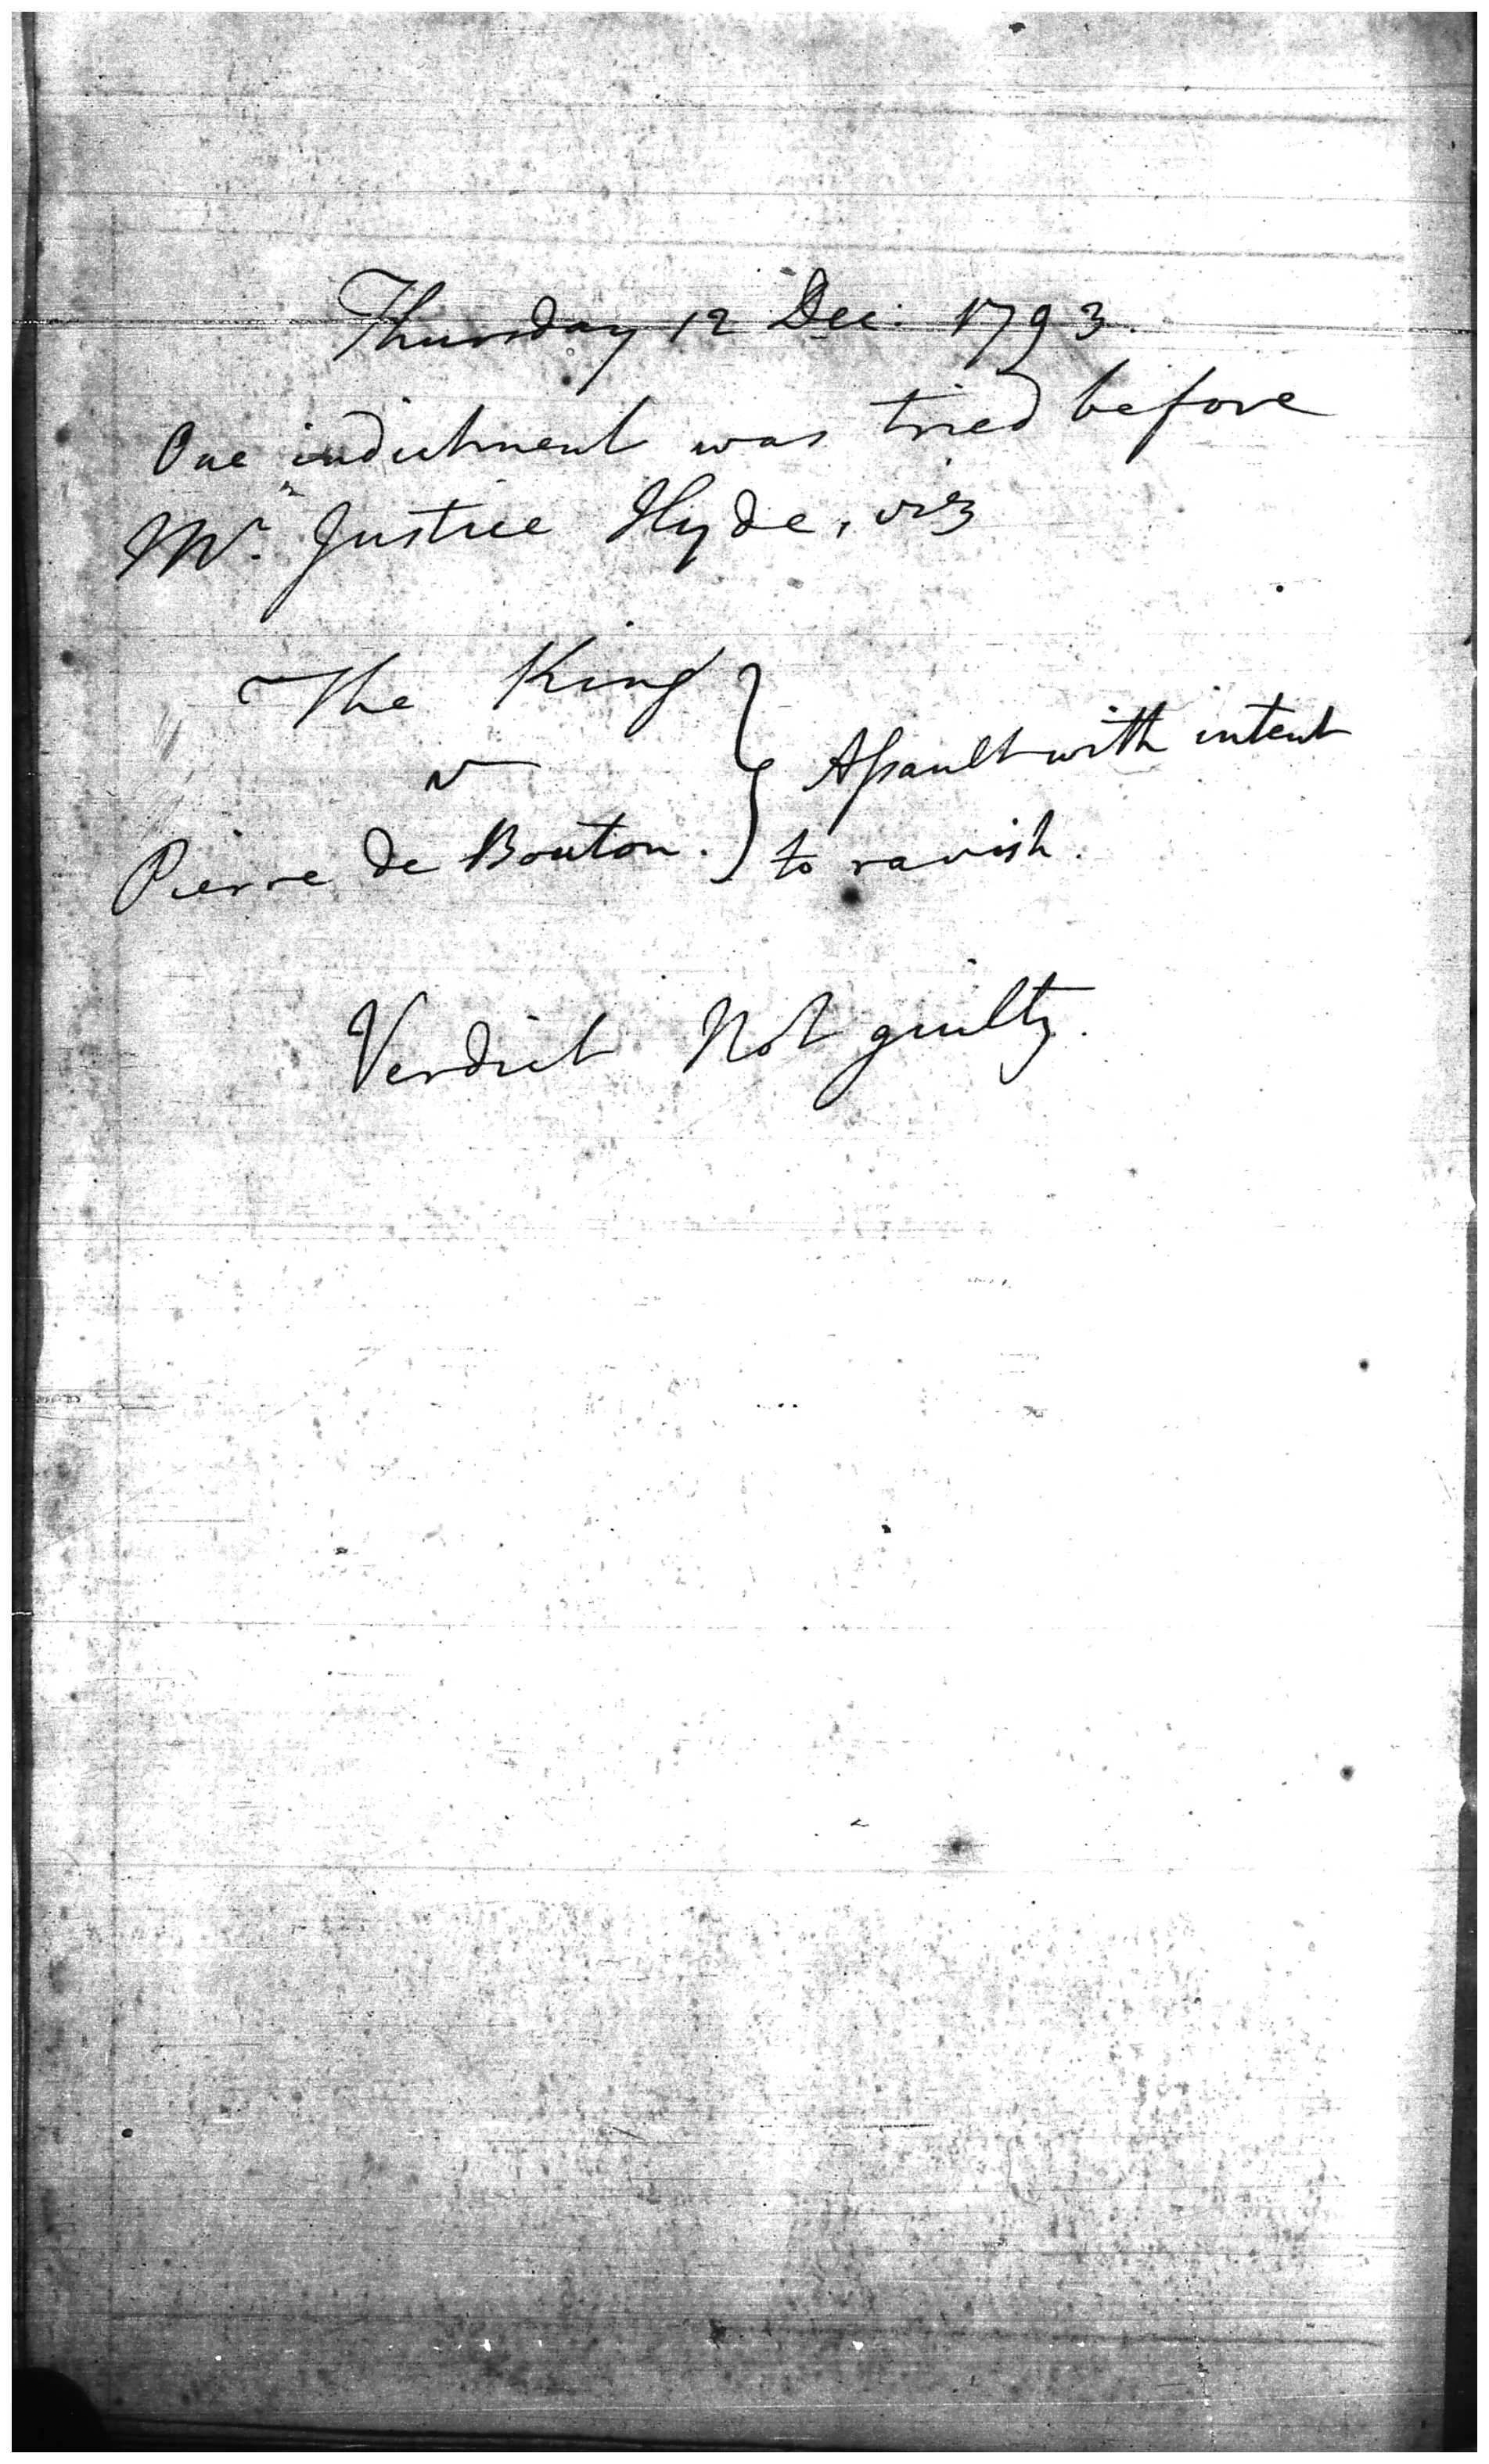 Thursday 12 Dec. 1793.
One indictment was tried before
Mr. Justice Hyde, viz
The King
v
Pierre de Bouton. } Assault with intent
to ravish.
Verdict Not guilty.